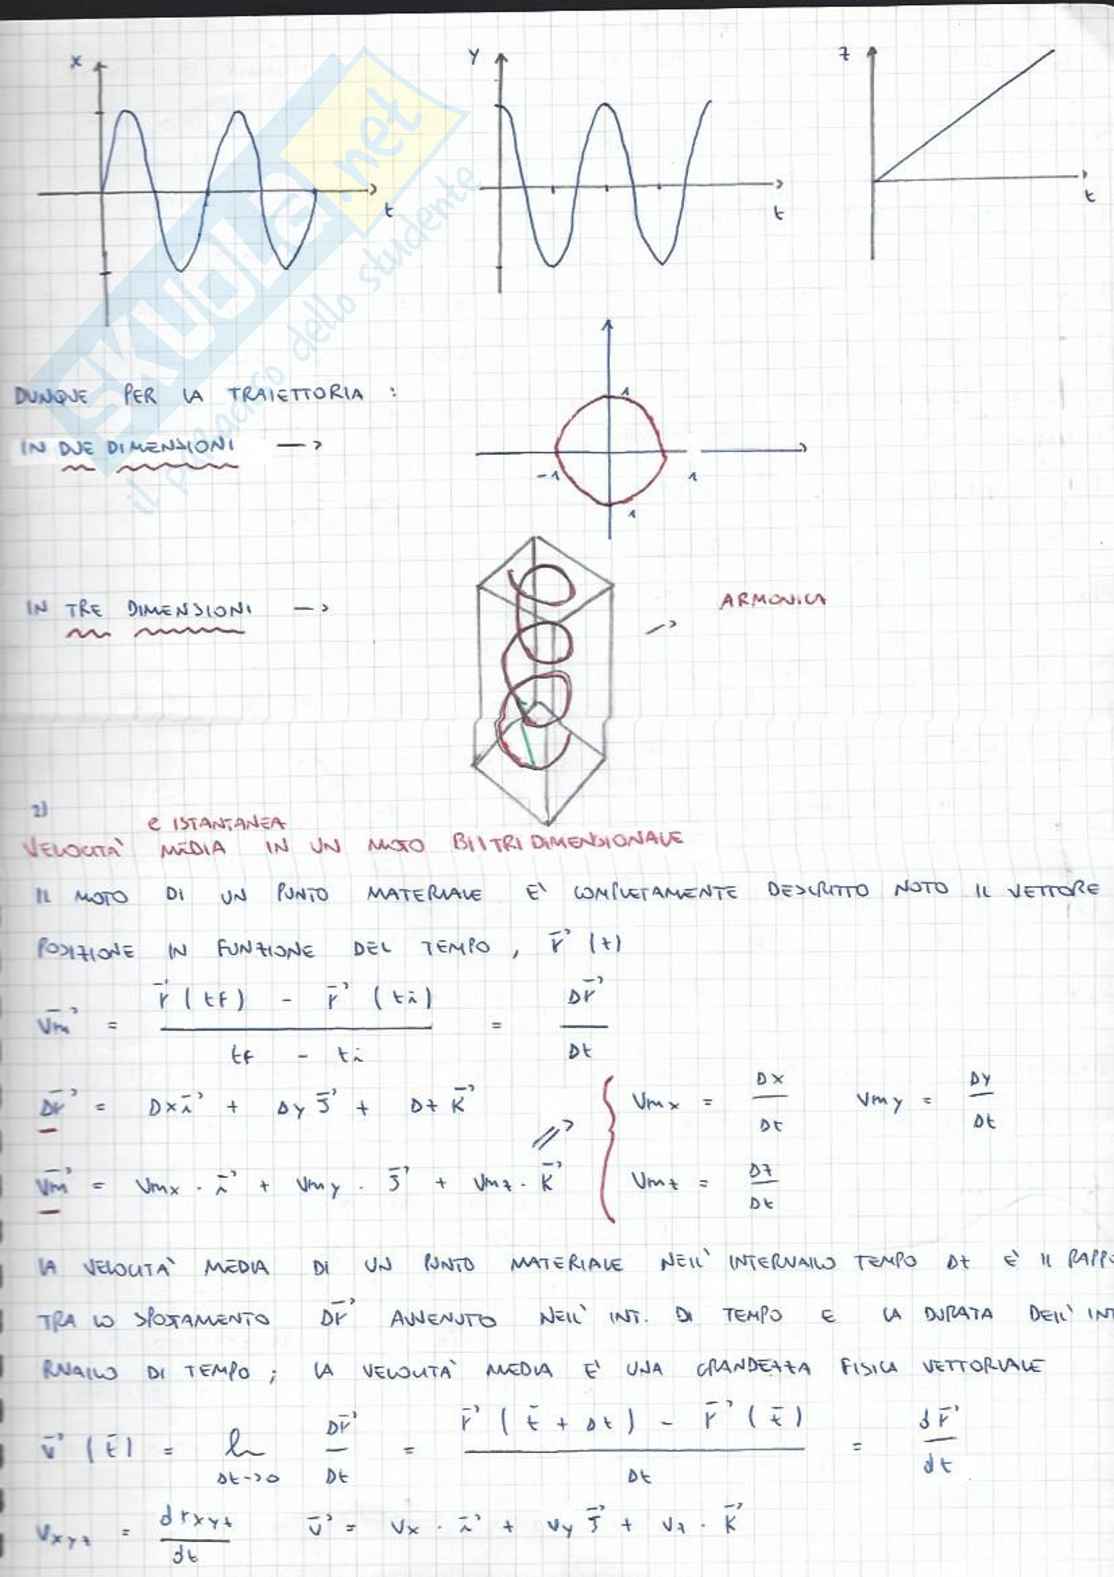 x
y
z
t
t
t
SKUOLA.net
il paradiso dello studente
DUNQUE PER LA TRAIETTORIA :
IN DUE DIMENSIONI →
1
-1
1
1
IN TRE DIMENSIONI →
→ ARMONICA
2)
e ISTANTANEA
VELOCITA' MEDIA IN UN MOTO BI/TRIDIMENSIONALE
IL MOTO DI UN PUNTO MATERIALE E' COMPLETAMENTE DESCRITTO NOTO IL VETTORE
POSIZIONE IN FUNZIONE DEL TEMPO , r⃗ (t)
v⃗m = r⃗ (tf) - r⃗ (ti) / tf - ti = Δr⃗ / Δt
Δr⃗ = Δx i⃗ + Δy j⃗ + Δz k⃗
⇒ { Vmx = Δx / Δt Vmy = Δy / Δt
v⃗m = Vmx · i⃗ + Vmy · j⃗ + Vmz · k⃗
Vmz = Δz / Δt
LA VELOCITA' MEDIA DI UN PUNTO MATERIALE NELL' INTERVALLO TEMPO Δt E' IL RAPPO
TRA LO SPOSTAMENTO Δr⃗ AVVENUTO NELL' INT. DI TEMPO E LA DURATA DELL' INT
RVALLO DI TEMPO ; LA VELOCITA' MEDIA E' UNA GRANDEZZA FISICA VETTORIALE
v⃗ (t̄) = lim Δt→0 Δr⃗ / Δt = r⃗ (t̄ + Δt) - r⃗ (t̄) / Δt = dr⃗ / dt
Vxyz = drxyz / dt v⃗ = Vx · i⃗ + Vy j⃗ + Vz · k⃗